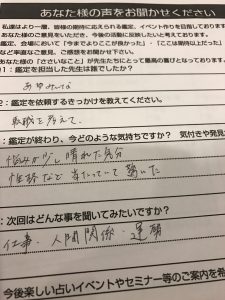 あなた様の声をお聞かせください
私達はより一層、皆様の期待に応えられる鑑定、イベント作りを目指しております
あなた様のご意見をいただき、今後の活動に反映したいと考えております。
鑑定、会場において「今まてよりここが良かった」・「ここは期待以上だった」
など率直なご意見、ご感想をお聞かせ下さい。
あなた様の「ささいなこと」が先生たちにとって最高の喜びとなっております。
1:鑑定を担当した先生は誰でしたか?
2:鑑定を依頼するきっかけを教えてください。
転職を考えて。
:鑑定が終わり、今どのような気持ちですか? 気付きや発見
悩みが少し晴れた気分
性格など当たっていて驚いた
:次回はどんな事を聞いてみたいですか?
仕事・人間関係・運勢
今後楽しい占いイベントやセミナー等のご案内を希